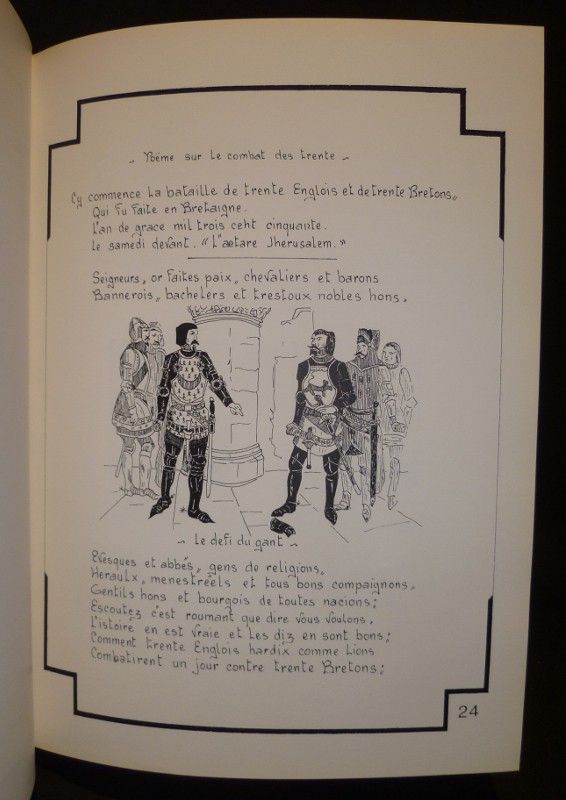 „ Poëme sur le combat des trente „
Cy commence la bataille de trente Englois et de trente Bretons„
Qui fu faite en Bretaigne.
L'an de grace mil trois cent cinquante.
Le samedi devant. « L"aetare Jherusalem. »
Seigneurs, or faites paix, chevaliers et barons
Bannerois, bachelers et trestoux nobles hons.
~ Le defi du gant ~
Evesques et abbés, gens de religions,
Heraulx, menestreels et tous bons compaignons,
Gentils hons et bourgois de toutes nacions;
Escoutez c'est roumant que dire vous voulons,
L'istoire en est vraie et les diz en sont bons;
Comment trente Englois hardix comme lions
Combatirent un jour contre trente Bretons;
24